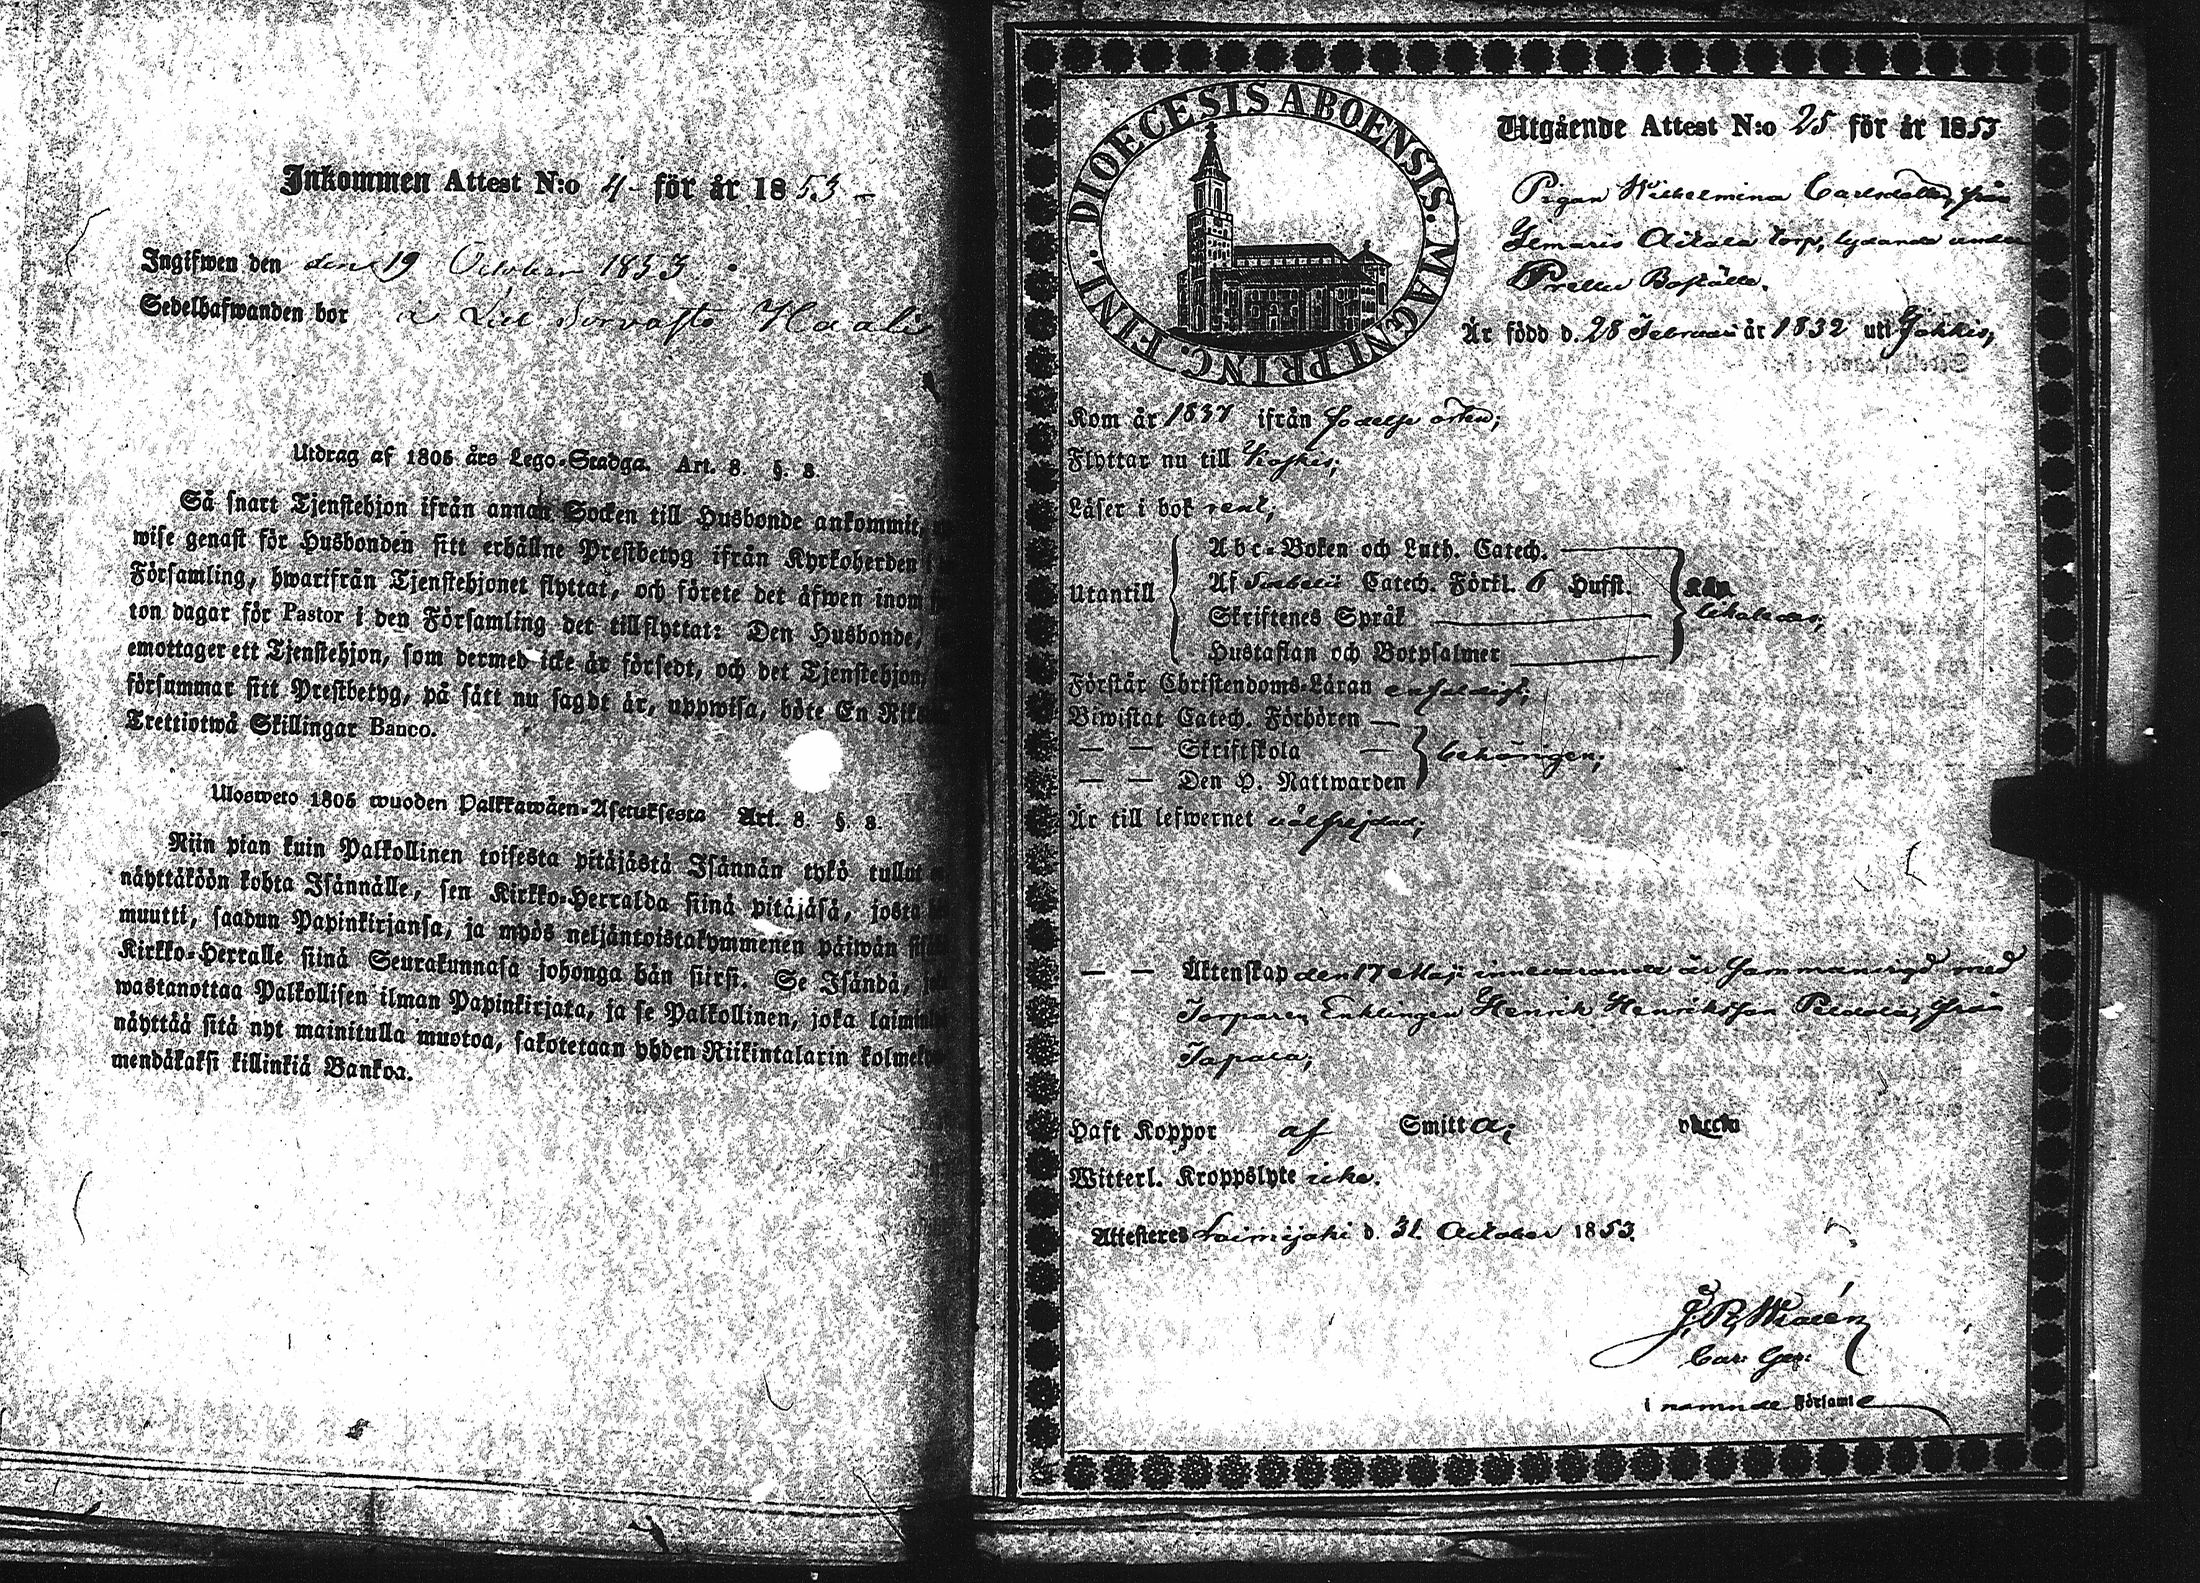 Inkommen Attest N:o 4 för år 1853
Ingifwen den den 19 October 1853.
Sedelhafwanden bor à Lill Sorvasto Haali
Utdrag af 1805 års Lego-Stadga. Art. 8. §. 8
Så snart Tjenstehjon ifrån annan Socken till Husbonde ankommit,
wise genast för Husbonden sitt erhållne Prestbetyg ifrån Kyrkoherden
Församling, hwarifrån Tjenstehjonet flyttat, och förete det äfwen inom
ton dagar för Pastor i den Församling det tillflyttat: Den Husbonde,
emottager ett Tjenstehjon, som dermed icke är försedt, och det Tjenstehjon,
försummar sitt Prestbetyg, på sätt nu sagdt är, uppwisa, böte En Riks
Trettiotwå Skillingar Banco.
Ulosweto 1805 wuoden Palkkawäen-Asetuksesta Art. 8. §. 8.
Niin pian kuin Palkollinen toisesta pitäjästä Isännän tykö tullut
näyttäköön kohta Isännälle, sen Kirkko-Herralda siinä pitäjäsä, josta
muutti, saadun Papinkirjansa, ja myös neljäntoistakymmenen päiwän
Kirkko-Herralle siinä Seurakunnasa johonga hän siirsi. Se Isändä,
wastanottaa Palkollisen ilman Papinkirjata, ja se Palkollinen, joka
näyttää sitä nyt mainitulla muotoa, sakotetaan yhden Riikintalarin
mendäkaksi killinkiä Bankoa.
DIOECESIS ABOENSIS. MAGNI PRINC. FINL.
Utgående Attest N:o 25 för år 1853
Pigan Wilhelmina Carlsdotter, från
torp, lydande under
Prellu Boställe.
Är född d. 28 Februari år 1832 uti Jokkis,
Kom år 1837 ifrån födelse orten;
Flyttar nu till Koskis;
Läser i bok rent,
Utantill
Abc-Boken och Luth. Catech.
Af Catech. Förkl. 6 Hufst.
Skriftenes Språk
Hustaflan och Botpsalmer
Förstår Christendoms-Läran enfaldigt;
Biwistat Catech. Förhören
— — Skriftskola — behörigen;
— — Den H. Nattwarden
Är till lefwernet välfrejdad;
— — Äktenskap den 17 Maji innevarande år Sammanvigd med
Torparen Enklingen Henrik Henriksson Peldola, från
Tapala;
Haft Koppor af Smitta;
Witterl. Kroppslyte icke.
Attesteres Loimijoki d. 31 October 1853.
i namnde Församl